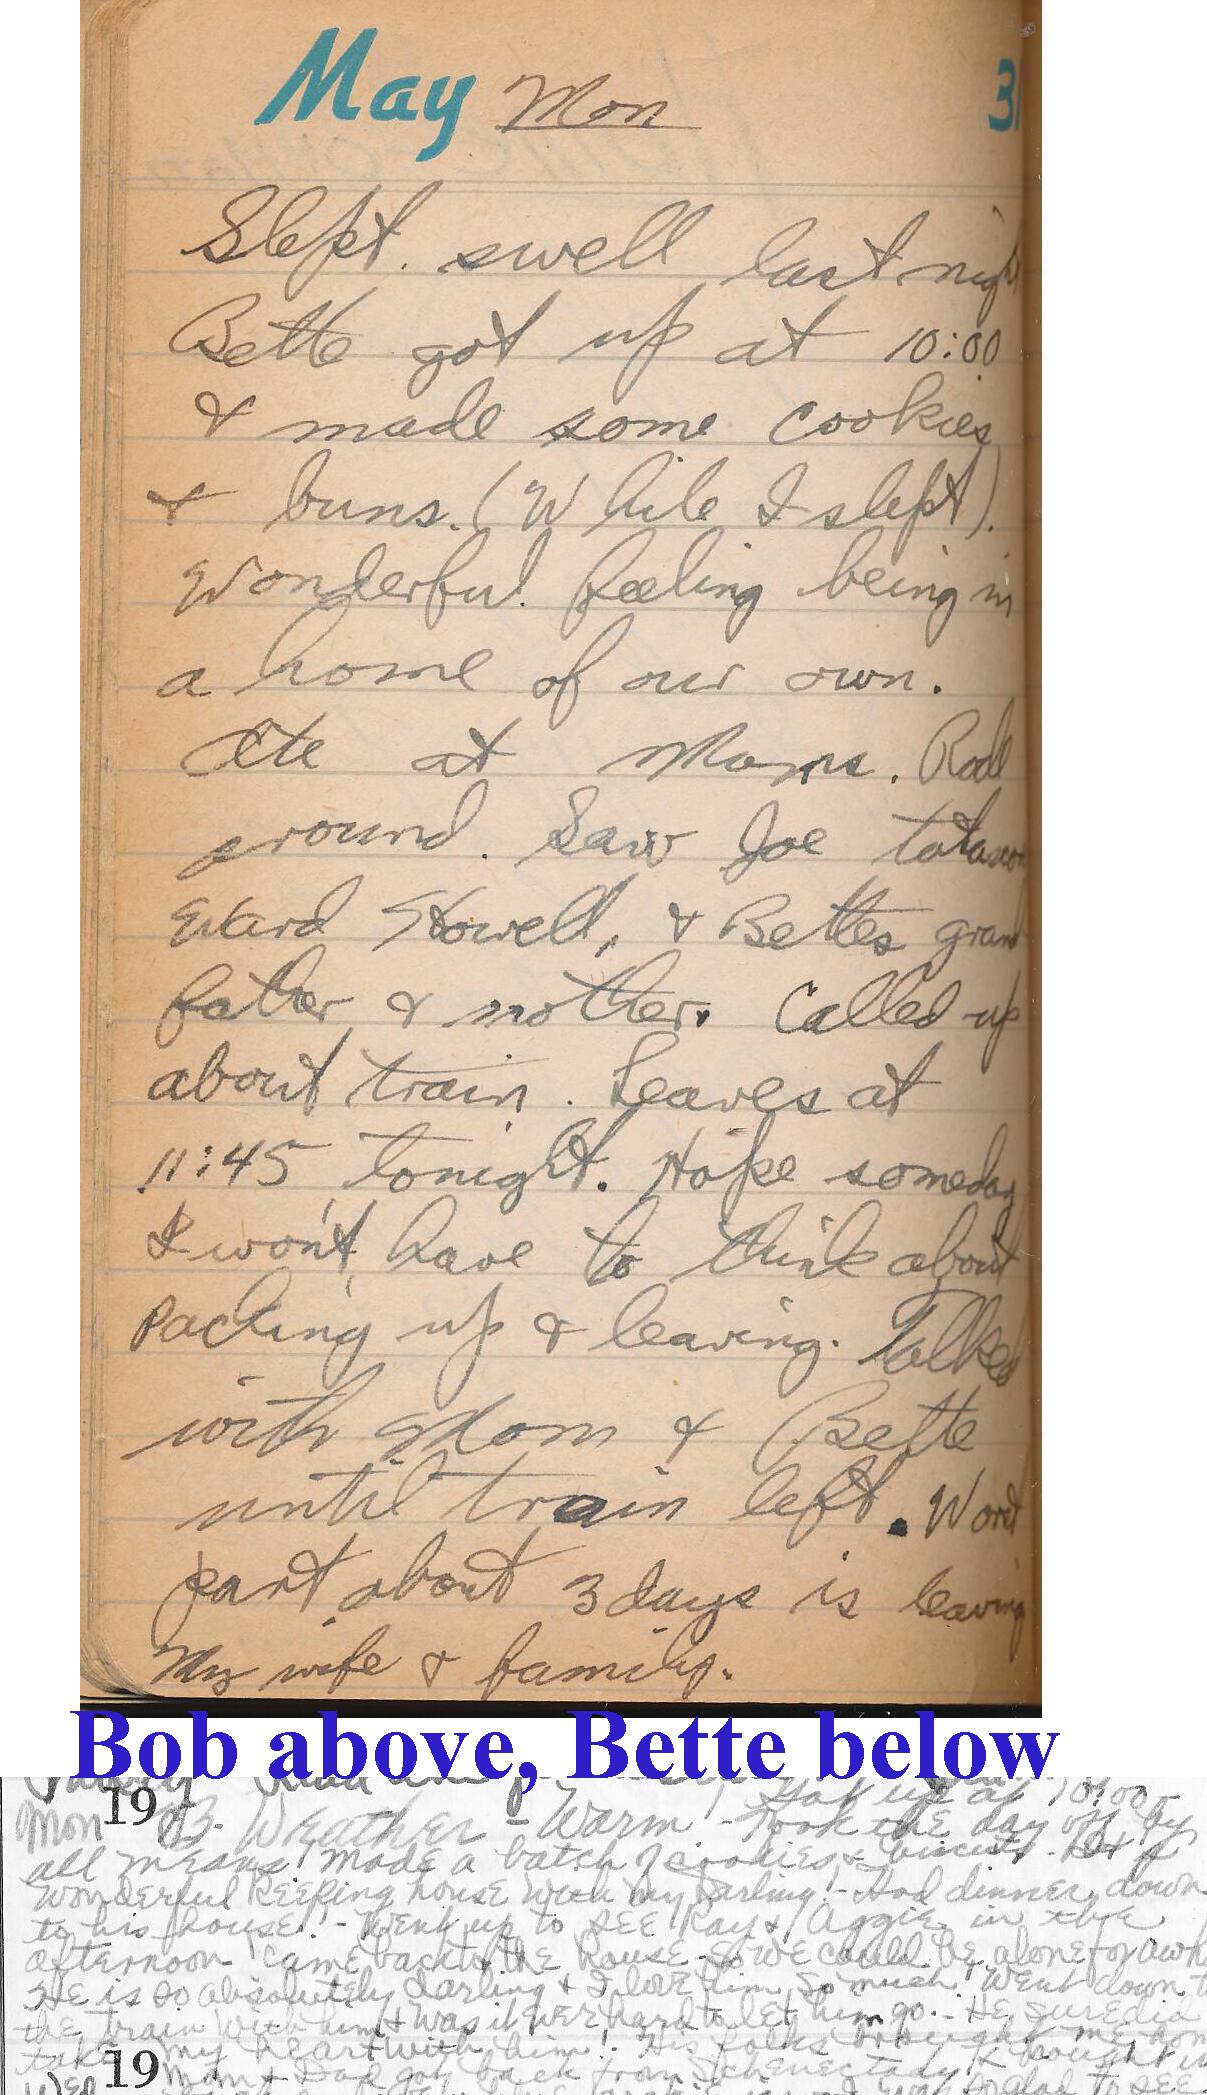 May Mon 31
Slept swell last night
Bette got up at 10:00
& made some cookies
& buns. (While I slept).
Wonderful feeling being in
a home of our own.
Ate at Moms. Rode
ground. Saw Joe
Ward Stowell, & Bettes grand
father & mother. Called up
about train. Leaves at
11:45 tonight. Hope someday
I won't have to think about
packing up & leaving. Talked
with Mom & Bette
until train left. Worst
part about 3 days is leaving
My wife & family.
Bob above, Bette below
Got up at 10:00-
19
Mon 83- Weather - Warm - Took the day off by
all means! Made a batch of cookies & biscuits. It is
wonderful keeping house with my darling! - Had dinner down
to his house! - Went up to see Ray & Aggie in the
afternoon came back to the house so we could be alone for awh
He is so absolutely darling & I love him so much! Went down t
the train with him & was it ever hard to let him go. - He sure did
take my heart with him! His folks brought me hom
19
Mom & Dad got back from Schenectady &
glad to see